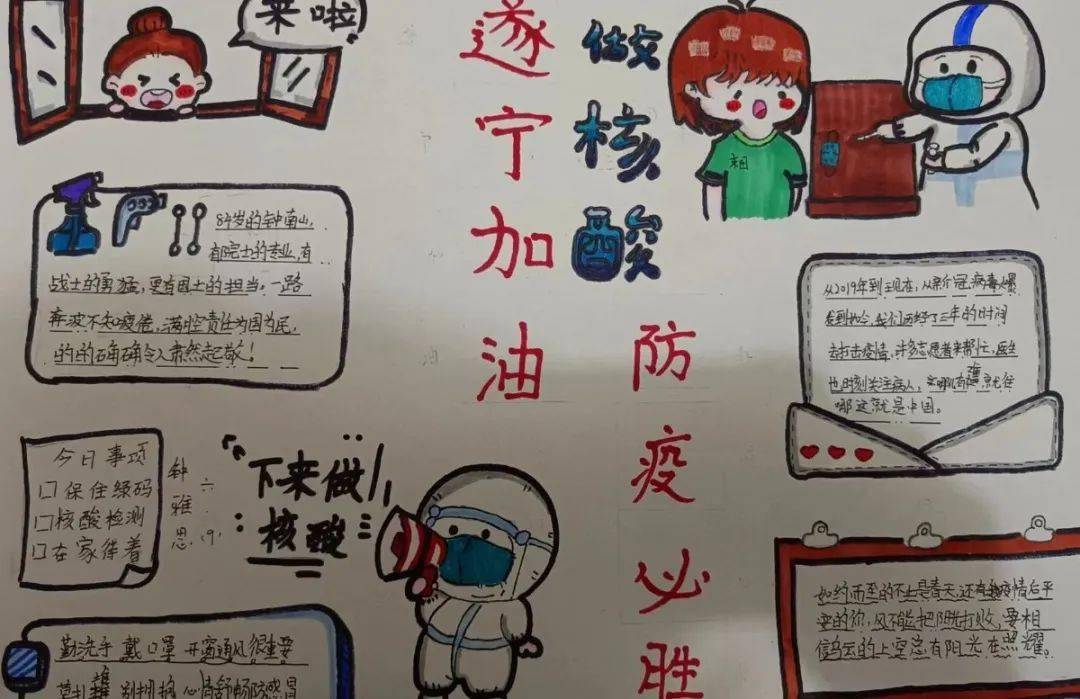 来啦
遂宁加油
做核酸
防疫必胜
84岁的钟南山，
有院士的专业，有
战士的勇猛，更有国士的担当。一路
奔波不知疲倦，满腔责任为国为民，
的的确确令人肃然起敬！
从2019年到现在，从新冠病毒爆
发到如今，我们历经了三年的时间
去打击疫情，许多志愿者来帮忙，医生
也时刻关注病人，
哪这就是中国。
今日事项
口保住绿码
口核酸检测
口在家待着
钟雅思
六.(9)
下来做
核酸
如约而至的不止是春天，还有疫情后平
安的你，风不能把阳光打败，要相
信乌云的上空总有阳光在照耀。
勤洗手 戴口罩 开窗通风很重要
心情舒畅防感冒